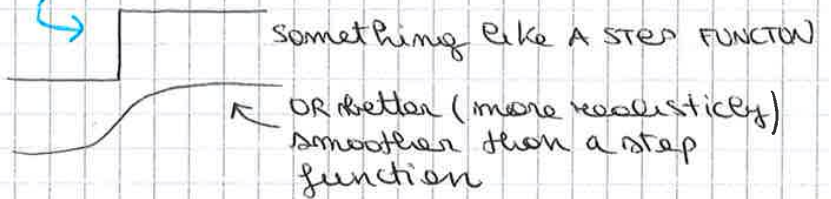 something like A STEP FUNCTON
OR better (more realisticly)
smoother than a step
function